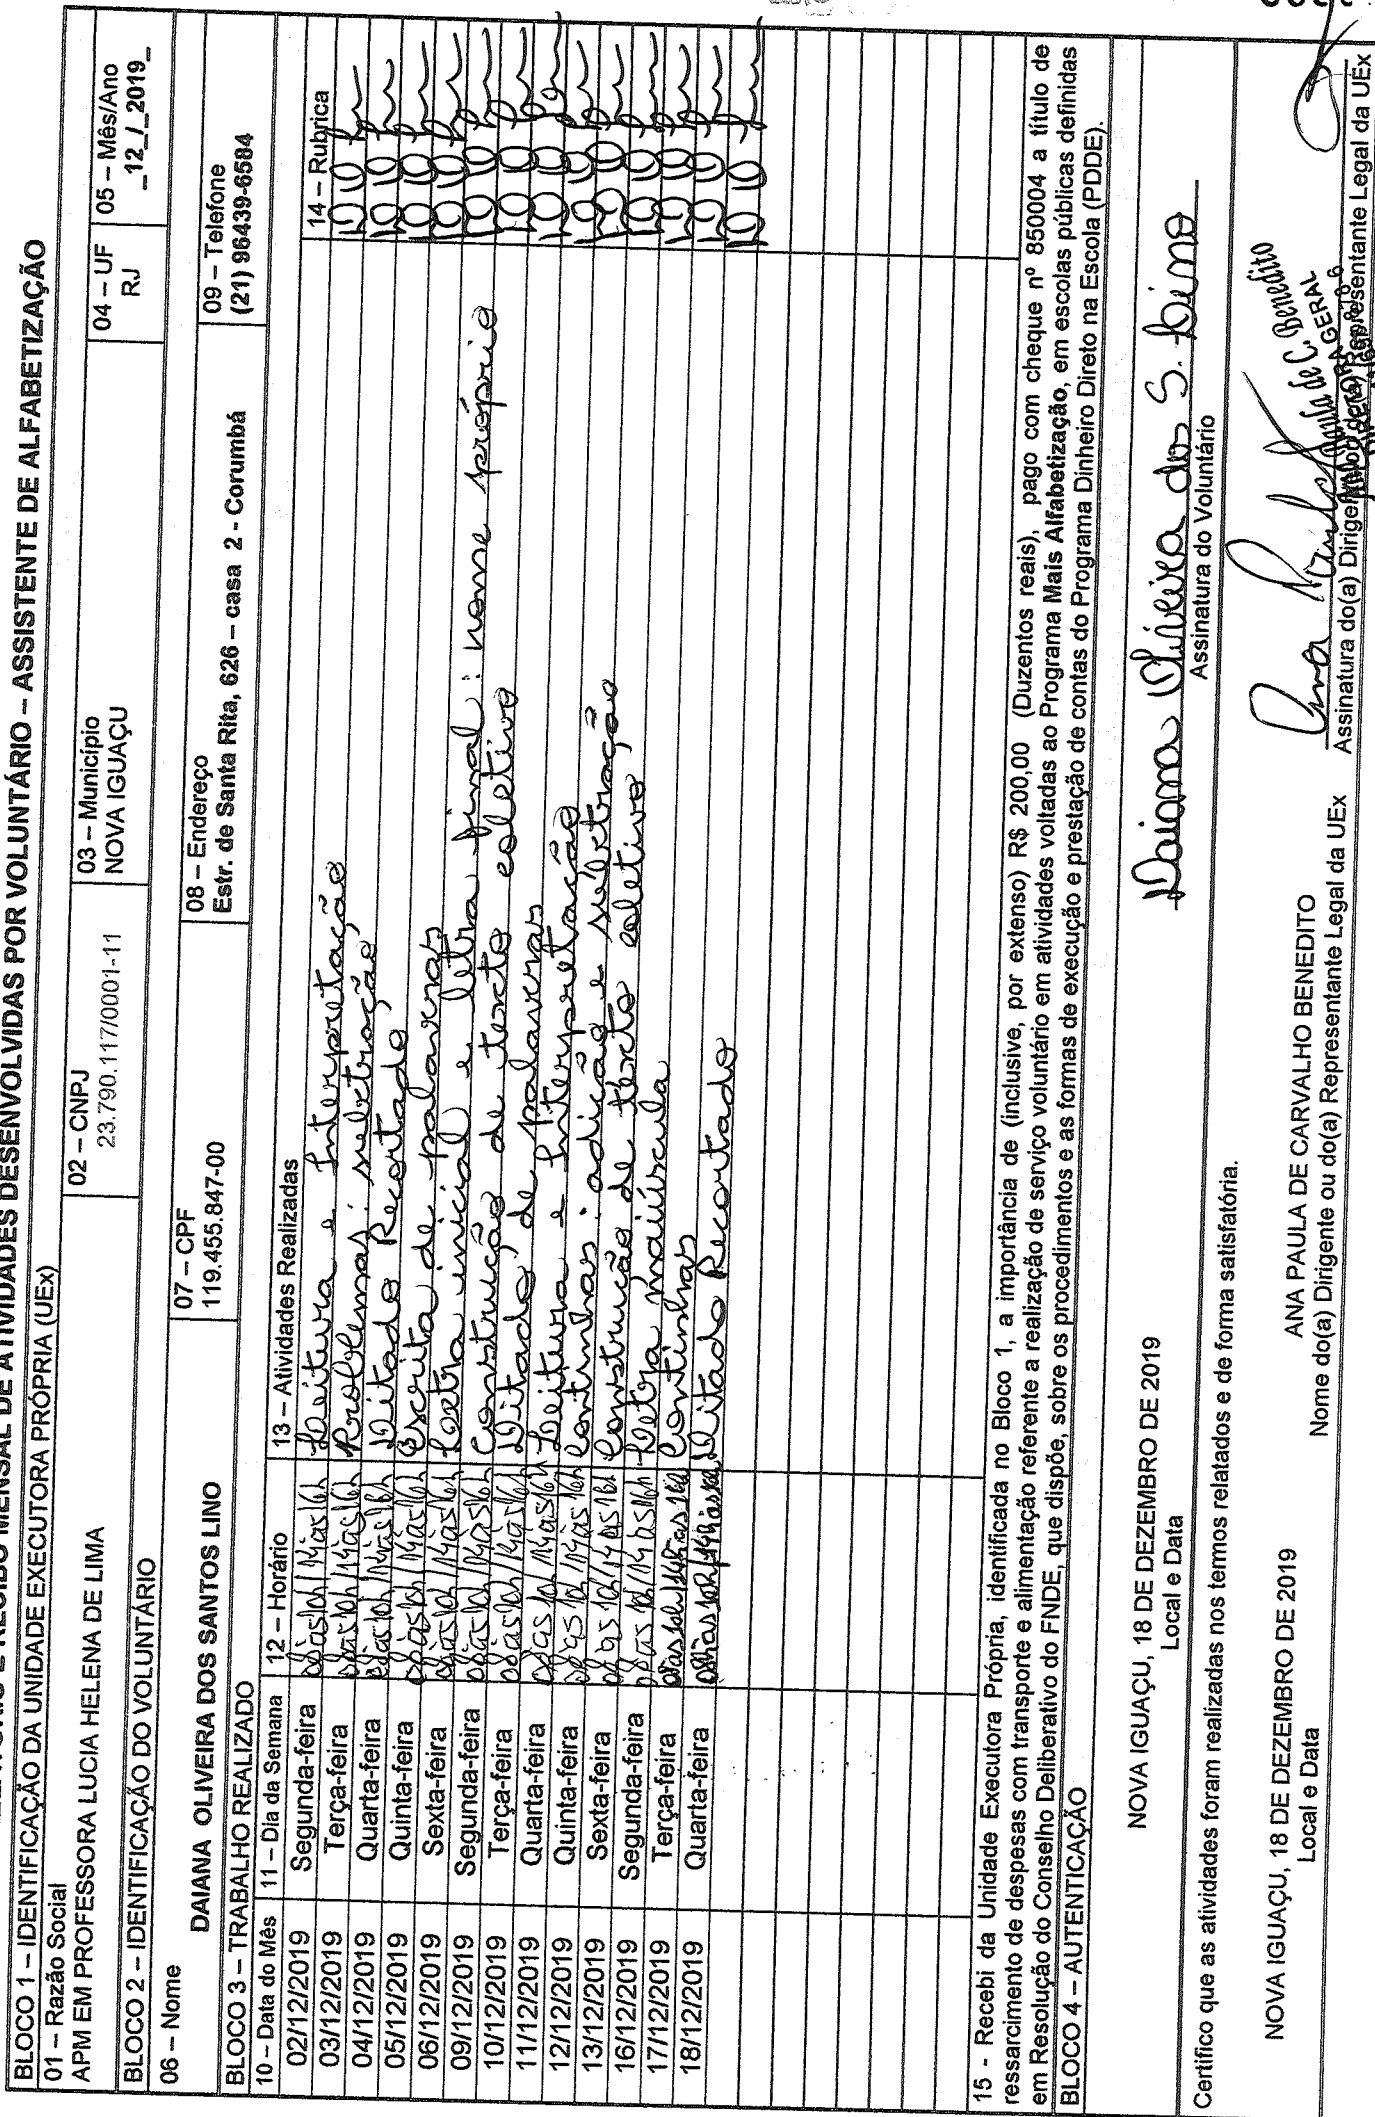 RELATÓRIO E RECIBO MENSAL DE ATIVIDADES DESENVOLVIDAS POR VOLUNTÁRIO – ASSISTENTE DE ALFABETIZAÇÃO
BLOCO 1 – IDENTIFICAÇÃO DA UNIDADE EXECUTORA PRÓPRIA (UEx)
01 – Razão Social
APM EM PROFESSORA LUCIA HELENA DE LIMA
02 – CNPJ
23.790.117/0001-11
03 – Município
NOVA IGUAÇU
04 – UF
RJ
05 – Mês/Ano
_12_/_2019_
BLOCO 2 – IDENTIFICAÇÃO DO VOLUNTÁRIO
06 – Nome
DAIANA OLIVEIRA DOS SANTOS LINO
07 – CPF
119.455.847-00
08 – Endereço
Estr. de Santa Rita, 626 – casa 2 - Corumbá
09 – Telefone
(21) 96439-6584
BLOCO 3 – TRABALHO REALIZADO
10 – Data do Mês 11 – Dia da Semana 12 – Horário 13 – Atividades Realizadas 14 – Rubrica
02/12/2019 Segunda-feira 8h às 10h/14h às 16h Leitura e Interpretação
03/12/2019 Terça-feira 8h às 10h/14h às 16h Problemas: subtração
04/12/2019 Quarta-feira 8h às 10h/14h às 16h Ditado Recortado
05/12/2019 Quinta-feira 8h às 10h/14h às 16h Escrita de palavras
06/12/2019 Sexta-feira 8h às 10h/14h às 16h Letra inicial e letra final: nome próprio
09/12/2019 Segunda-feira 8h às 10h/14h às 16h Construção de texto coletivo
10/12/2019 Terça-feira 8h às 10h/14h às 16h Ditado de palavras
11/12/2019 Quarta-feira 8h às 10h/14h às 16h Leitura e Interpretação
12/12/2019 Quinta-feira 8h às 10h/14h às 16h Continhas: adição e subtração
13/12/2019 Sexta-feira 8h às 10h/14h às 16h Construção de texto coletivo
16/12/2019 Segunda-feira 8h às 10h/14h às 16h Letra maiúscula
17/12/2019 Terça-feira 8h às 10h/14h às 16h Continhas
18/12/2019 Quarta-feira 8h às 10h/14h às 16h Ditado Recortado
15 - Recebi da Unidade Executora Própria, identificada no Bloco 1, a importância de (inclusive, por extenso) R$ 200,00 (Duzentos reais), pago com cheque nº 850004 a título de
ressarcimento de despesas com transporte e alimentação referente a realização de serviço voluntário em atividades voltadas ao Programa Mais Alfabetização, em escolas públicas definidas
em Resolução do Conselho Deliberativo do FNDE, que dispõe, sobre os procedimentos e as formas de execução e prestação de contas do Programa Dinheiro Direto na Escola (PDDE).
BLOCO 4 – AUTENTICAÇÃO
NOVA IGUAÇU, 18 DE DEZEMBRO DE 2019
Local e Data
Daiana Oliveira dos S. Lino
Assinatura do Voluntário
Certifico que as atividades foram realizadas nos termos relatados e de forma satisfatória.
NOVA IGUAÇU, 18 DE DEZEMBRO DE 2019
Local e Data
ANA PAULA DE CARVALHO BENEDITO
Nome do(a) Dirigente ou do(a) Representante Legal da UEx
Paula de C. Benedito
DIRETORA GERAL
Assinatura do(a) Dirigente ou do(a) Representante Legal da UEx